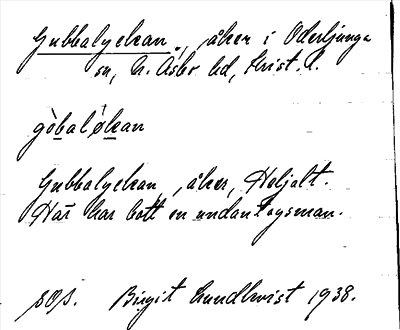 Gubbalyckan, åker i Oderljunga
sn, N. Åsbo hd, Krist. l.
gòbalykan
Gubbalyckan, åker, Höljalt.
Här har bott en undantagsman.
SOS. Birgit Lundkvist 1938.